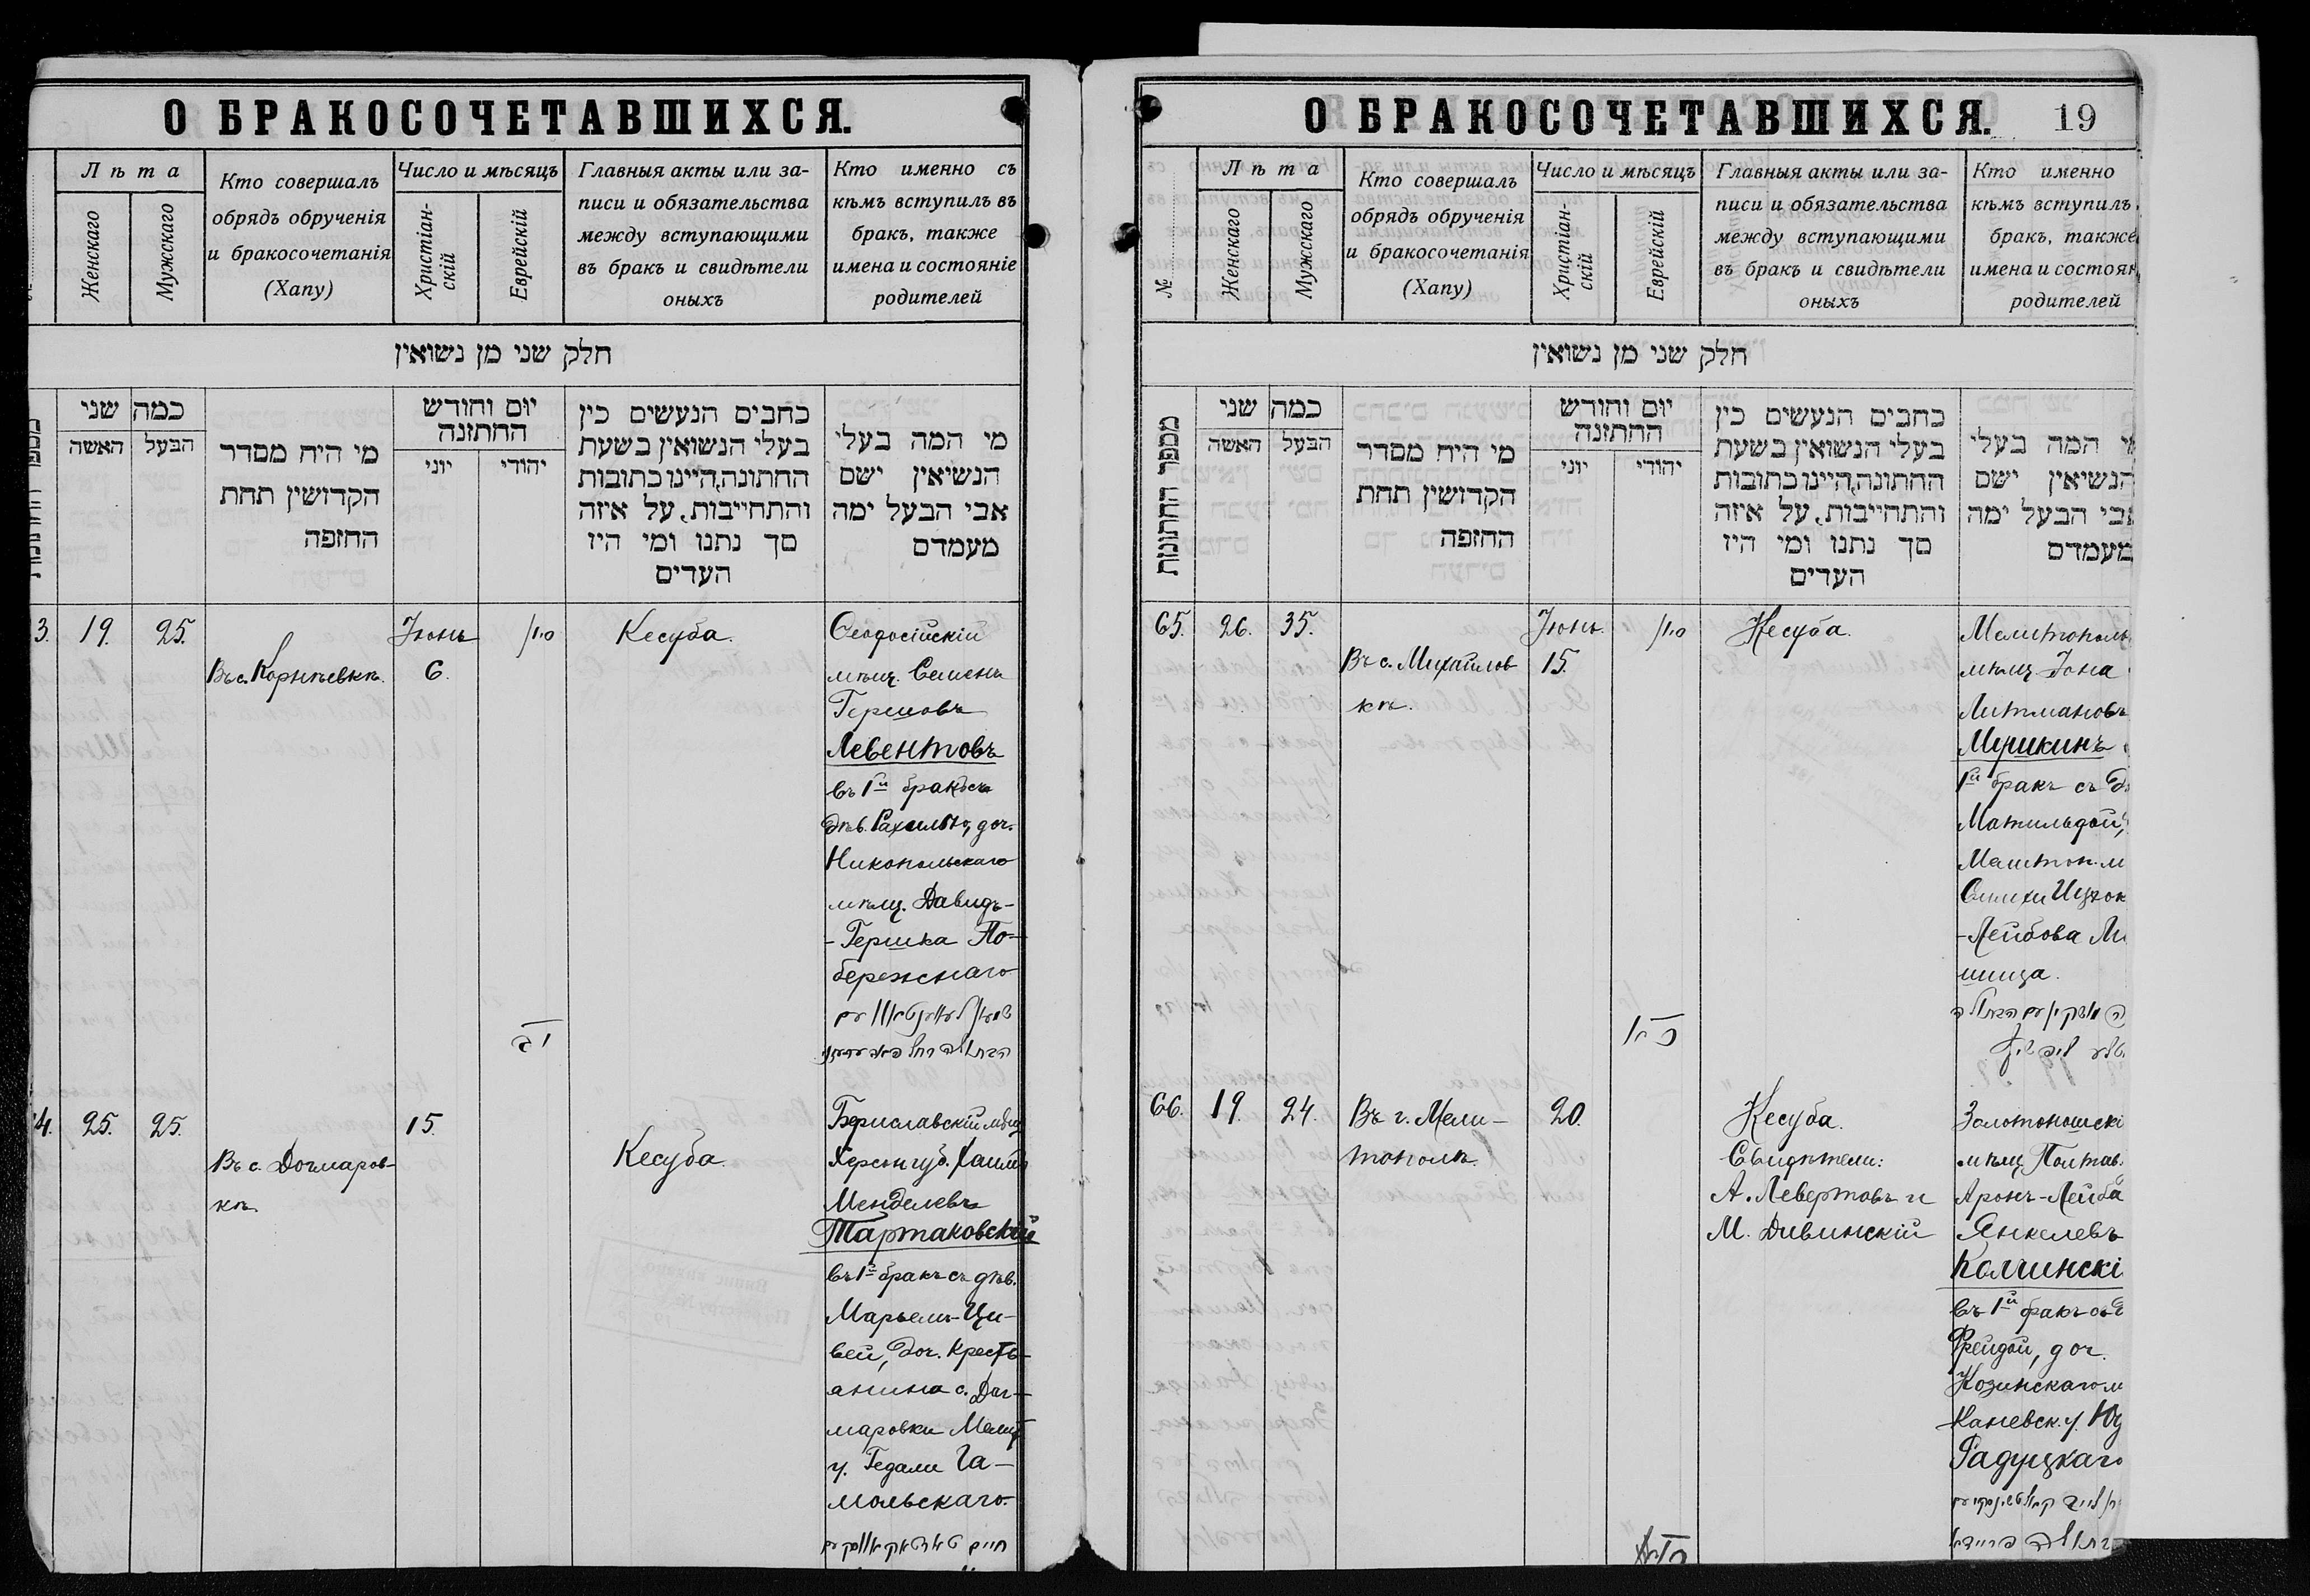 О БРАКОСОЧЕТАВШИХСЯ.
Лѣта
Женскаго
Мужскаго
Кто совершалъ
обрядъ обрученія
и бракосочетанія
(Хапу)
Число и мѣсяцъ
Христіан-
скій
Еврейскій
Главныя акты или за-
писи и обязательства
между вступающими
въ бракъ и свидѣтели
оныхъ
Кто именно съ
кѣмъ вступилъ въ
бракъ, также
имена и состояніе
родителей
חלק שני מן נשואין
כמה שני
האשה
הבעל
מי היה מסדר
הקדושין תחת
החופה
יום וחודש
החתונה
יוני
יהודי
כתבים הנעשים כין
בעלי הנשואין בשעת
החתונה,היינו כתובות
והתחייבות, על איזה
סך נתנו ומי היו
העדים
מי המה בעלי
הנשיאין ישם
אבי הבעל ימה
מעמדם
3.
19.
25.
Въ с. Корнѣевкѣ.
Іюнь
6.
Кесуба.
Ѳеодосійскій
мѣщ. Семенъ
Гершовъ
Левентовъ
въ 1й бракъ съ
дѣв. Рахилью, доч.
Никопольскаго
мѣщ. Давидъ-
-Гершка По-
бережнаго
4.
25.
25.
Въ с. Догмаров-
кѣ.
15.
Кесуба.
Бериславскій мѣщ
Херсон губ. Хаимъ
Менделевъ
Тартаковскій
въ 1й бракъ съ дѣв.
Марьемъ-Ци-
вей, доч. кресть-
янина с. Дог-
маровки Мелит
у. Гедали Га-
мольскаго.
О БРАКОСОЧЕТАВШИХСЯ.
19
№
Лѣта
Женскаго
Мужскаго
Кто совершалъ
обрядъ обрученія
и бракосочетанія
(Хапу)
Число и мѣсяцъ
Христіан-
скій
Еврейскій
Главныя акты или за-
писи и обязательства
между вступающими
въ бракъ и свидѣтели
оныхъ
Кто именно
кѣмъ вступилъ
бракъ, также
имена и состоян
родителей
חלק שני מן נשואין
מספר החתונות
כמה שני
האשה
הבעל
מי היה מסדר
הקדושין תחת
החופה
יום וחודש
החתונה
יוני
יהודי
כתבים הנעשים כין
בעלי הנשואין בשעת
החתונה,היינו כתובות
והתחייבות, על איזה
סך נתנו ומי היו
העדים
י המה בעלי
הנשיאין ישם
אבי הבעל ימה
מעמדם
65.
26.
35.
Въ с. Михайлов
кѣ.
Іюнь.
15.
Кесуба.
Мелитополь
мѣщ. Іона
Литмановъ
Мушкинъ
1й бракъ съ д
Матильдой,
Мелитоп. м
Симхи Ицхок
-Лейбова Ли
шица.
66.
19.
24.
Въ г. Мели-
тополѣ.
20.
Кесуба.
Свидѣтели:
А. Левертовъ и
М. Дивинскій
Золотоношскі
мѣщ. Полтав.
Аронъ-Лейба
Янкелевъ
Колчинскі
въ 1й бракъ съ д
Фрейдой, доч.
Козинскаго м
Каневск. у. Юд
Радуцкаго